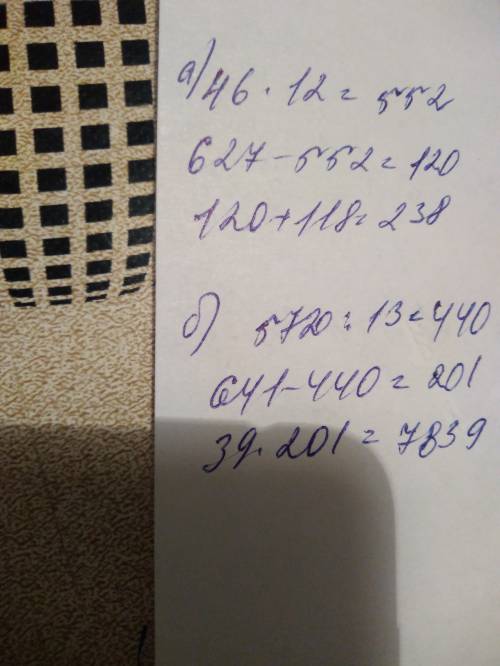 а) 46 · 12 = 552
627 - 552 = 120
120 + 118 = 238
б) 5720 : 13 = 440
641 - 440 = 201
39 · 201 = 7839